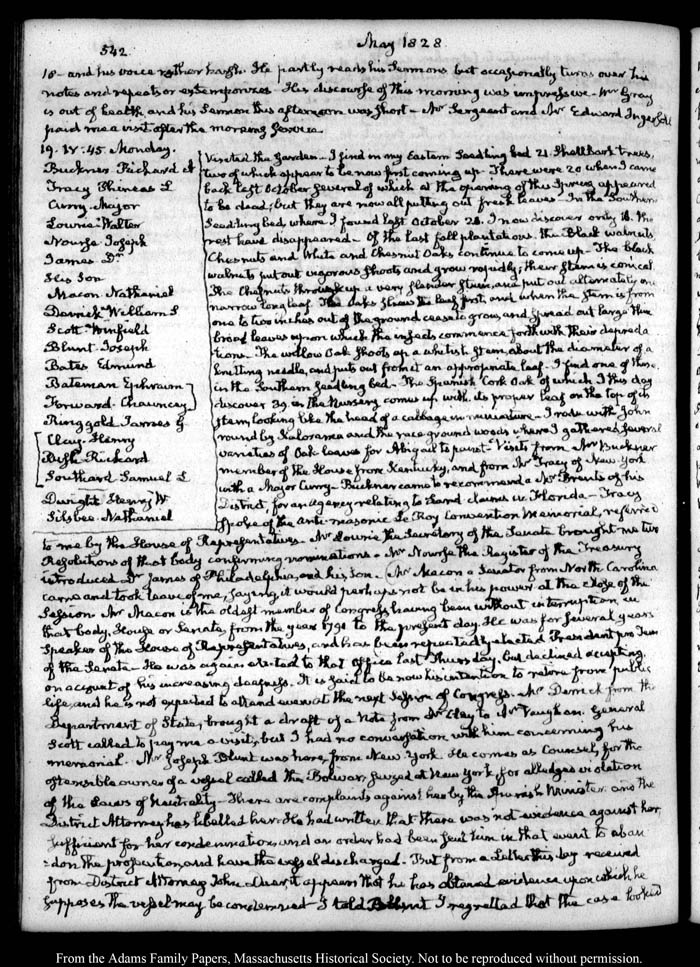 542
May 1828
18— and his voice rather harsh. He partly reads his Sermons but occasionally turns over his
notes and repeats or extemporises. His discourse of this morning was impressive. Mr Gray
is out of health, and his Sermon this afternoon was short— Mr Sergeant and Mr Edward Ingersoll
paid me a visit after the morning service.
19. IV:45. Monday.
Buckner Richard A
Tracy Phineas L
Curry. Major
Lowrie Walter
Nourse Joseph
James Dr
His Son
Macon Nathaniel
Derrick William S
Scott Winfield
Blunt Joseph
Bates Edmund
Bateman Ephraim
Forward Chauncey
Ringgold James G
Clay Henry
Rush Richard
Southard Samuel L
Dwight Henry W
Silsbee Nathaniel
Visited the garden— I find in my Eastern Seedling bed 21 Shellbark trees,
two of which appear to be now first coming up. There were 20 when I came
back last October several of which at the opening of this Spring appeared
to be dead; but they are now all putting out fresh leaves. In the Southern
Seedling bed, where I found last October 28. I now discover only 18. The
rest have disappeared— Of the last fall plantations, the Black walnuts
Chesnuts and White and Chesnut Oaks continue to come up. The black
walnuts put out vigorous shoots and grow rapidly; their stem is conical
The Chesnuts throw up a very slender stem, and put out alternately one
narrow long leaf. The Oaks shew the leaf first, and when the stem is from
one to two inches out of the ground cease to grow, and spread out large thin
broad leaves upon which the insects commence forthwith their depreda
tions. The willow Oak shoots up a whitish stem, about the diameter of a
knitting needle, and puts out from it an appropriate leaf. I find one of these
in the Southern Seedling bed— The Spanish Cork Oak of which I this day
discover 39 in the Nursery comes up with its proper leaf on the top of its
stem, looking like the head of a cabbage in miniature— I rode with John
round by Kalorama and the race ground woods where I gathered several
varieties of Oak leaves for Abigail to paint— Visits from Mr Buckner
member of the House from Kentucky, and from Mr Tracy of New York
with a Major Curry— Buckner came to recommend a Mr Brents of his
District, for an agency relating to Land claims in Florida— Tracy
spoke of the Anti-masonic Le Roy Convention Memorial, referred
to me by the House of Representatives. Mr Lowrie the Secretary of the Senate brought me two
Resolutions of that body confirming nominations. Mr Nourse the Register of the Treasury
introduced Dr James of Philadelphia, and his son. Mr Macon a Senator from North Carolina
came and took leave of me, saying it would perhaps not be in his power at the close of the
Session. Mr Macon is the oldest member of Congress having been without interruption in
that body, House or Senate, from the year 1791 to the present day. He was for several years
Speaker of the House of Representatives, and has been repeatedly elected President pro Tem
of the Senate— He was again elected to that Office last Thursday, but declined accepting,
on account of his increasing deafness. It is said to be now his intention to retire from public
life, and he is not expected to attend even at the next Session of Congress. Mr Derrick from the
Department of State, brought a draft of a Note from Mr Clay to Mr Vaughan. General
Scott called to pay me a visit; but I had no conversation with him concerning his
memorial. Mr Joseph Blunt was here, from New York. He comes as Counsel, for the
ostensible owner of a vessel called the Bolivar, seized at New York for alledged violation
of the Laws of Neutrality— There are complaints against her by the Spanish Minister and the
District Attorney has libelled her. He had written that there was not evidence against her,
sufficient for her condemnation and an order had been sent him in that event to aban
don the prosecution, and have the vessel discharged— But from a Letter this day received
from District Attorney John Duer it appears that he has obtained evidence upon which he
supposes the vessel may be condemned— I told Blunt I regretted that the case looked
From the Adams Family Papers, Massachusetts Historical Society. Not to be reproduced without permission.